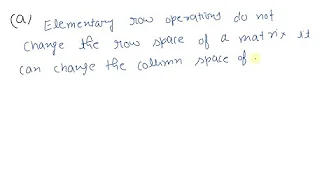 (a) Elementary row operations do not
change the row space of a matrix it
can change the column space of